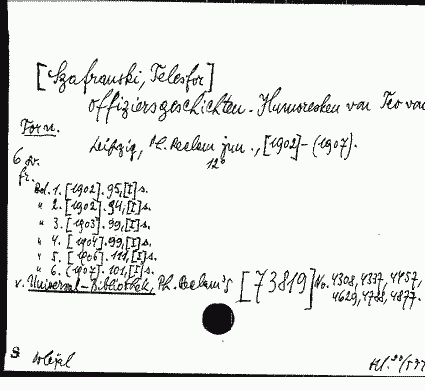 [Szafranski, Telesfor]
Offiziersgeschichten. Humoresken von Teo von
Torn.
Leipzig, Ph. Reclam jun., [1902]-(1907).
6 dv. 12°
fr.
Bd. 1. [1902]. 95, [I] s.
" 2. [1902]. 94, [I] s.
" 3. [1903]. 99, [I] s.
" 4. [1904]. 99, [I] s.
" 5. [1906]. 111, [I] s.
" 6. (1907). 101, [I] s.
v. Universal-Bibliothek, Ph. Reclam's [73819] No. 4308, 4337, 4457,
4629, 4798, 4877.